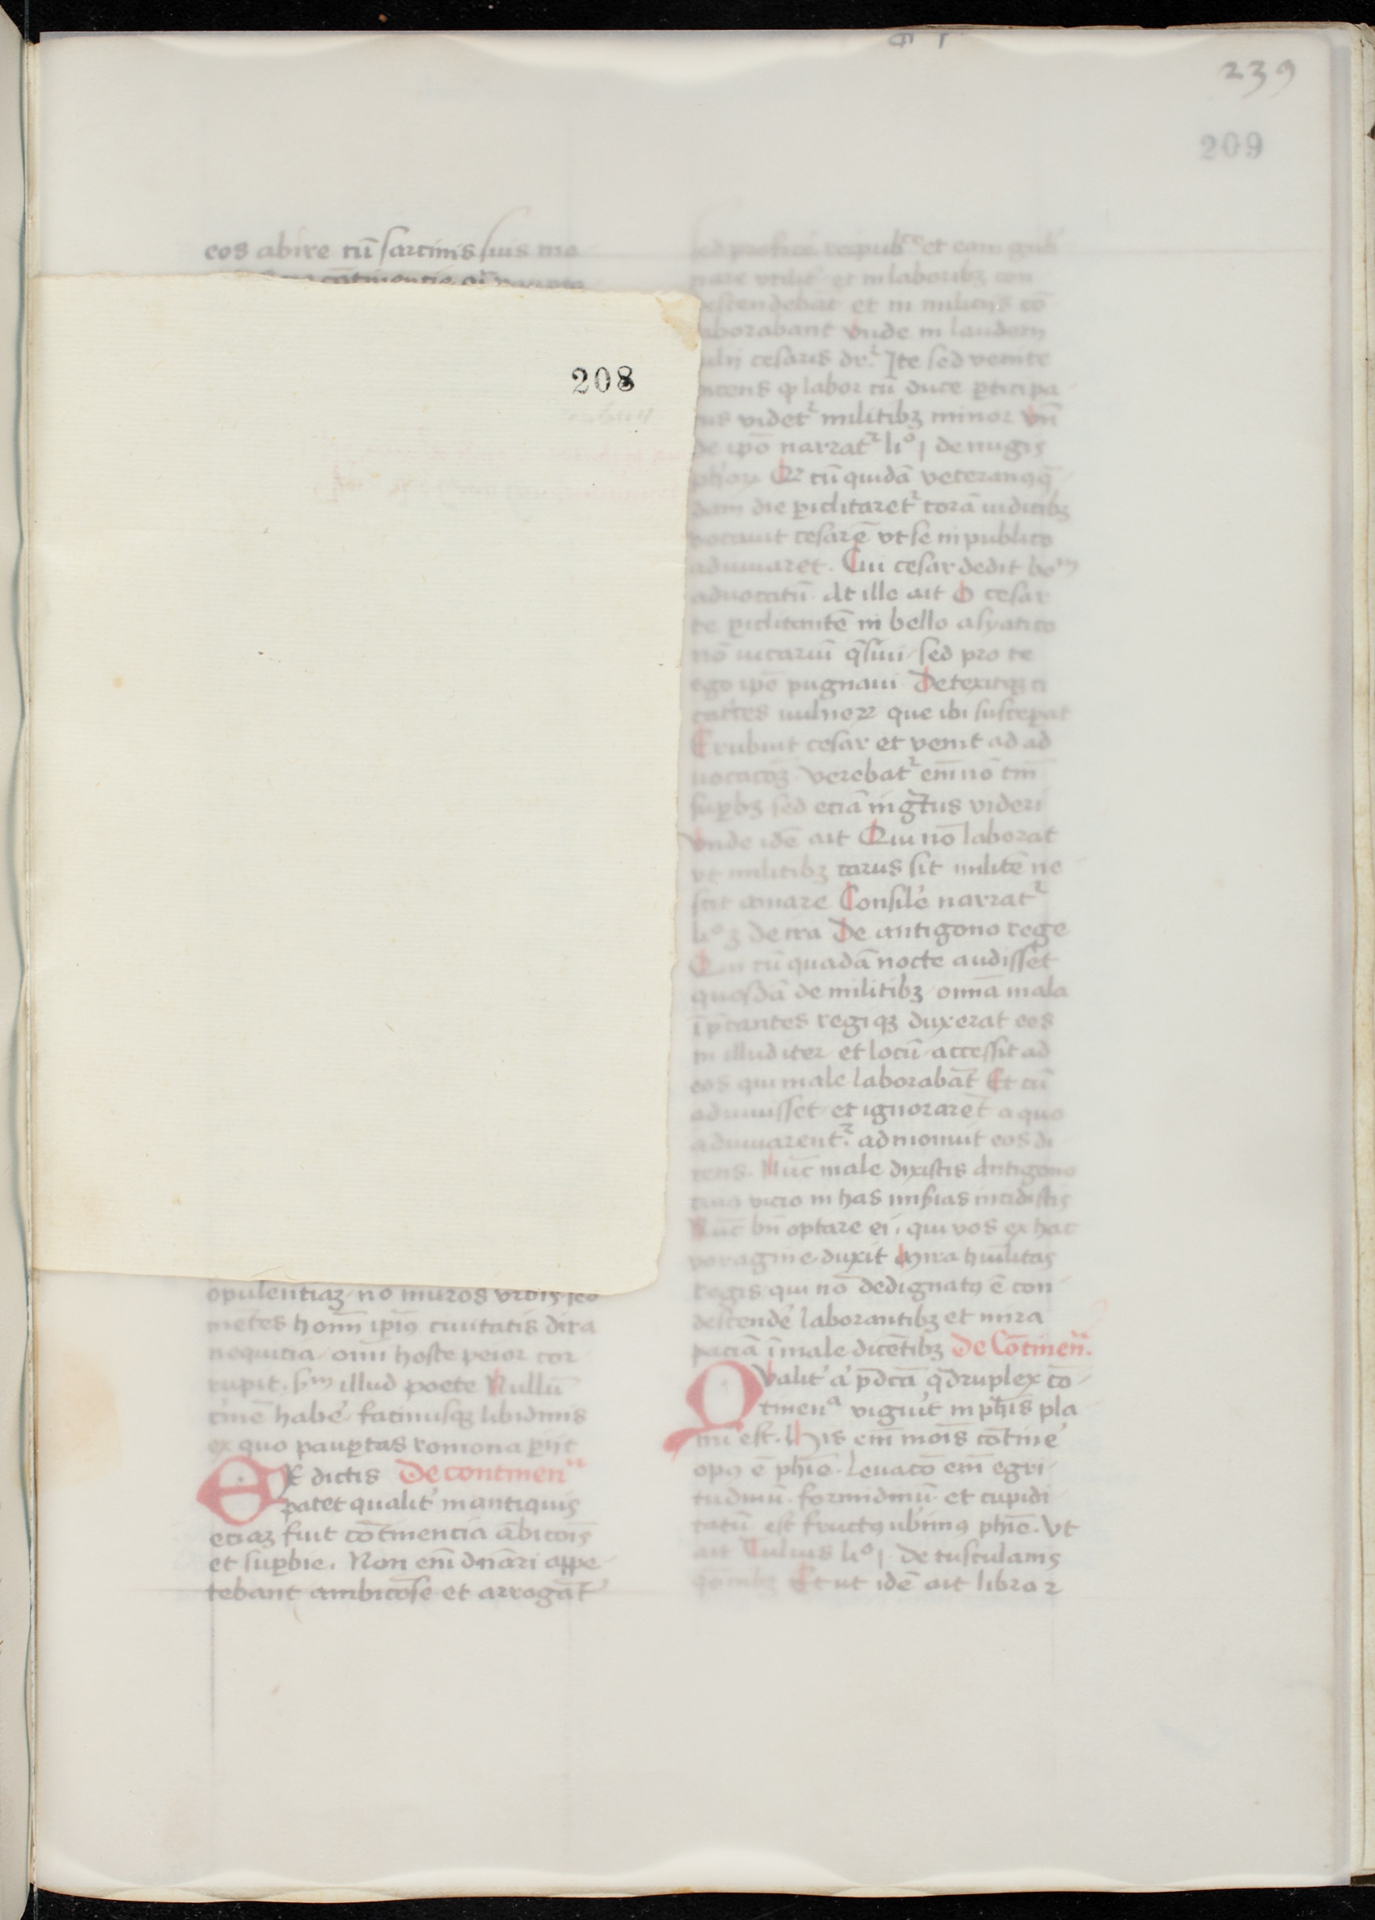 239
209
208
eos abire cū sarcinis suis
opulentiaꝫ nō muros urbis sed
mētes hoīm ipiꝰ ciuitatis dira
nequicia omī hoste peior cor
rupit. sm illud poete Nullū
crimē habe facinusqꝫ libidinis
ex quo paupertas romana perit
Ex dictis De continen
patet qualit' in antiquis
eciaꝫ fuit cōtinencia ābicōis
et superbie. Non enī dnāri appe
tebant ambicōse et arrogāt
sed proficē reipub et eam gub
nare utilit' et in laboribꝫ con
descendebāt et in miliciis cō
laborabant Unde in laudem
iulij cesaris dr Ite sed venite
dicens ꝙ labor cū duce participa
tus videt militibꝫ minor Un
de ipō narrat li° j de nugis
phoꝝ. Qꝛ cū quidā veteranꝰ
dam die periclitaret corā iudicibꝫ
vocauit cesarē ut se in publico
adiuuaret. Cui cesar dedit bo
aduocatū At ille ait O cesar
te periclitantē in bello asyatico
nō uicariū quesiui sed pro te
ego ipē pugnaui Detexitqꝫ ci
catrices uulneꝝ que ibi susceperat
Erubuit cesar et venit ad ad
uocacōꝫ verebat enī nō tm
superbꝫ sed eciā ingratus videri
Unde idē ait Qui nō laborat
ut militibꝫ carus sit militē ne
scit amare Consile narrat
li° 3 de ira De antigono rege
Qui cū quadā nocte audisset
quosdā de militibꝫ omnia mala
īprecantes regi qꝫ duxerat eos
in illud iter et locū accessit ad
eos qui male laborabāt Et cū
adiuuisset et ignorarēt a quo
adiuuarent admonuit eos di
cens. Nūc male dixistis antigono
cuiꝰ vicio in has miserias incidistis
Nūc bn optare ei. qui vos ex hac
voragine duxit Mira humilitas
regis qui nō dedignatꝰ ē con
descendē laborantibꝫ et mira
paciā ī male dicētibꝫ De Cōtinen.
Qualit' a pdcā quadruplex cō
tinena viguit in phis pla
nū est. His enī mōis cōtine
opꝰ ē phie. Leuacō enī egri
tudinū formidinū et cupidi
tatū est fructꝰ uberimꝰ phie. Ut
ait Tulius li° j De tusculanis
qōnibꝫ Et ut idē ait libro 2